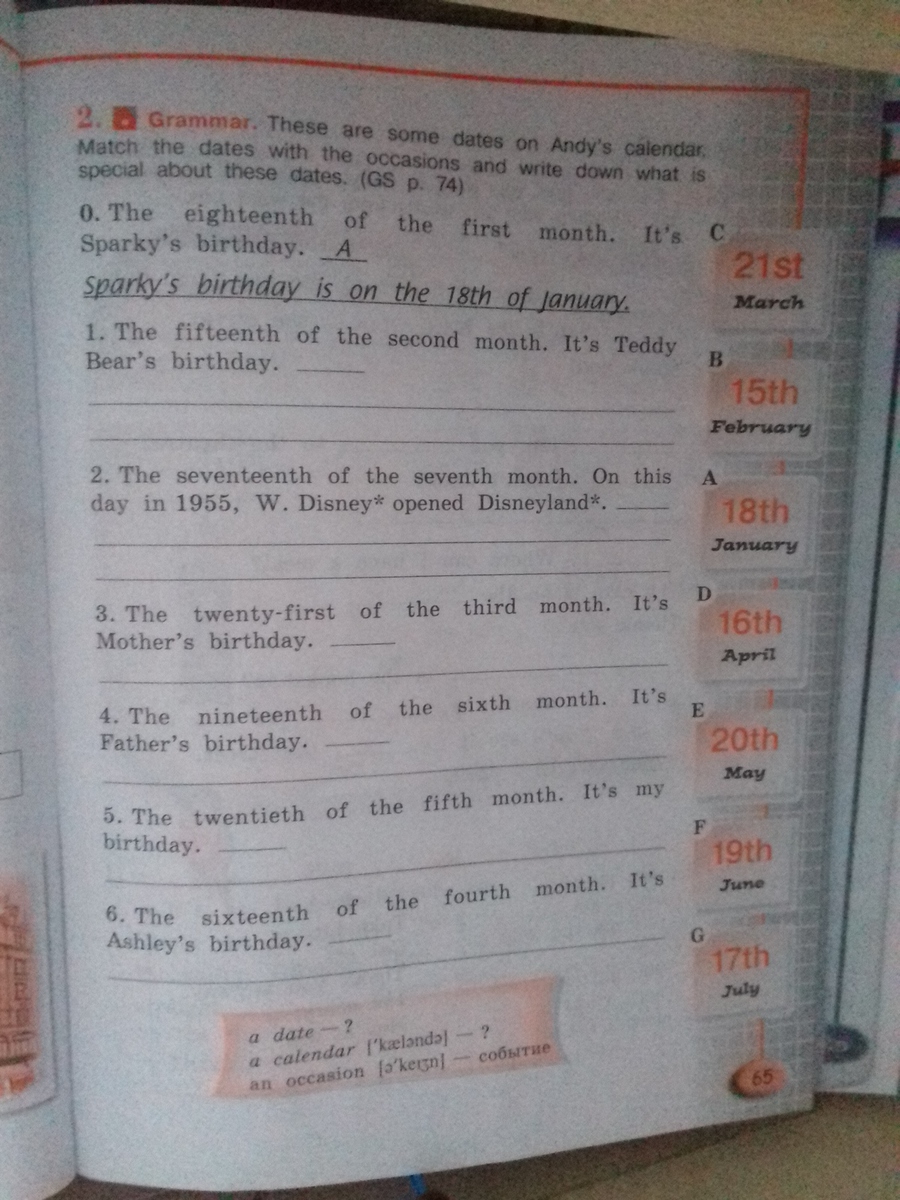 2. Grammar. These are some dates on Andy's calendar.
Match the dates with the occasions and write down what is
special about these dates. (GS p. 74)
0. The eighteenth of the first month. It's
Sparky's birthday. A
Sparky's birthday is on the 18th of January.
1. The fifteenth of the second month. It's Teddy
Bear's birthday.
2. The seventeenth of the seventh month. On this
day in 1955, W. Disney* opened Disneyland*.
3. The twenty-first of the third month. It's
Mother's birthday.
4. The nineteenth of the sixth month. It's
Father's birthday.
5. The twentieth of the fifth month. It's my
birthday.
6. The sixteenth of the fourth month. It's
Ashley's birthday.
C
21st
March
B
15th
February
A
18th
January
D
16th
April
E
20th
May
F
19th
June
G
17th
July
a date — ?
a calendar ['kæləndə] — ?
an occasion [ə'keɪʒn] — событие
65